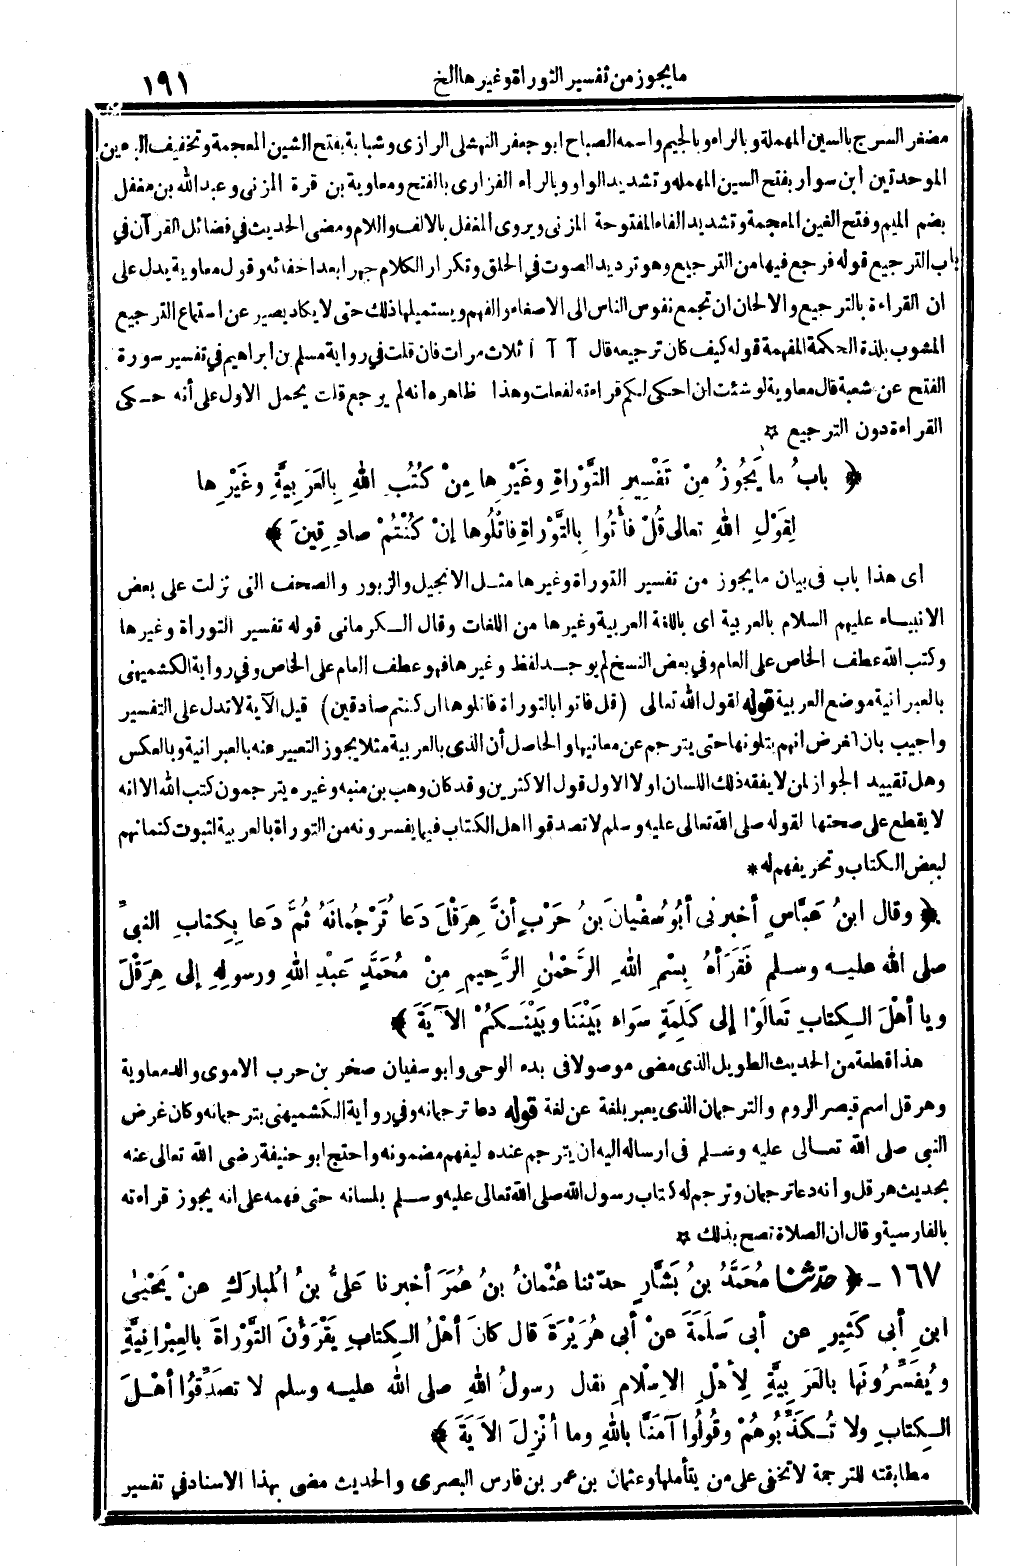 مايجوز من تفسير التوراة وغيرها الخ
١٩١
مصغر السرج بالسين المهملة وبالراء وبالجيم واسمه الصباح ابو جعفر النهشلى الرازى وشبابة بفتح الشين المعجمة وتخفيف الباءين
الموحدتين ابن سوار بفتح السين المهملة وتشديد الواو وبالراء الفزارى بالفتح ومعاوية بن قرة المزنى وعبد الله بن مغفل
بضم الميم وفتح الغين المعجمة وتشديد الفاء المفتوحة المزنى ويروى المغفل بالالف واللام ومضى الحديث في فضائل القرآن في
باب الترجيع قوله فرجع فيها من الترجيع وهو ترديد الصوت في الحلق وتكرار الكلام جهرا بعد اخفائه وقول معاوية يدل على
ان القراءة بالترجيع والالحان ان تجمع نفوس الناس الى الاصغاء والفهم ويستميلها ذلك حتى لا يكاد يصبر عن استماع الترجيع
المشوب بلذة الحكمة المفهمة قوله كيف كان ترجيعه قال آ آ آ ثلاث مرات فان قلت في رواية مسلم بن ابراهيم في تفسير سورة
الفتح عن شعبة قال معاوية لو شئت ان احكى لكم قراءته لفعلت وهذا ظاهره انه لم يرجع قلت يحمل الاول على أنه حكى
القراءة دون الترجيع ☆
﴿ بابُ ما يَجُوزُ مِنْ تَفْسِيرِ التَّوْراةِ وغَيْرِها مِنْ كُتُبِ اللهِ بِالعَرَبِيَّةِ وغَيْرِها
لِقَوْلِ اللهِ تعالى قُلْ فأْتُوا بِالتَّوْراةِ فاتْلُوها إنْ كُنْتُمْ صادِقِينَ ﴾
اى هذا باب فى بيان مايجوز من تفسير التوراة وغيرها مثل الانجيل والزبور والصحف التى نزلت على بعض
الانبياء عليهم السلام بالعربية اى باللغة العربية وغيرها من اللغات وقال الكرمانى قوله تفسير التوراة وغيرها
وكتب الله عطف الخاص على العام وفي بعض النسخ لم يوجد لفظ وغيرها فهو عطف العام على الخاص وفي رواية الكشميهنى
بالعبرانية موضع العربية قوله لقول الله تعالى (قل فاتوا بالتوراة فاتلوها ان كنتم صادقين) قيل الآية لاتدل على التفسير
واجيب بان الغرض انهم يتلونها حتى يترجم عن معانيها والحاصل أن الذى بالعربية مثلا يجوز التعبير عنه بالعبرانية وبالعكس
وهل تقييد الجواز لمن لا يفقه ذلك اللسان او لا الاول قول الاكثرين وقد كان وهب بن منبه وغيره يترجمون كتب الله الا انه
لا يقطع على صحتها لقوله صلى الله تعالى عليه وسلم لاتصدقوا اهل الكتاب فيما يفسرونه من التوراة بالعربية لثبوت كتمانهم
لبعض الكتاب وتحريفهم له *
﴿ وقال ابنُ عبَّاسٍ أخبرنى أبُو سُفْيانَ بنُ حَرْبٍ أنَّ هِرَقْلَ دَعا تُرْجُمانَهُ ثُمَّ دَعا بِكِتابِ النبىِّ
صلى الله عليه وسلم فَقَرَأهُ بِسْمِ اللهِ الرَّحْمٰنِ الرَّحِيمِ مِنْ مُحَمَّدٍ عَبْدِ اللهِ ورسولِهِ إلى هِرَقْلَ
ويا أهْلَ الكِتابِ تَعالَوْا إلى كَلِمَةٍ سَواءٍ بَيْنَنا وبَيْنَكُمْ الآيَةَ ﴾
هذا قطعة من الحديث الطويل الذى مضى موصولا فى بدء الوحى وابو سفيان صخر بن حرب الاموى والد معاوية
وهرقل اسم قيصر الروم والترجمان الذى يعبر بلغة عن لغة قوله دعا ترجمانه وفي رواية الكشميهنى بترجمانه وكان غرض
النبى صلى الله تعالى عليه وسلم فى ارساله اليه ان يترجم عنده ليفهم مضمونه واحتج ابو حنيفة رضى الله تعالى عنه
بحديث هرقل وانه دعا ترجمان وترجم له كتاب رسول الله صلى الله تعالى عليه وسلم بلسانه حتى فهمه على انه يجوز قراءته
بالفارسية وقال ان الصلاة تصح بذلك ☆
١٦٧ - ﴿ حدّثنا مُحَمَّدُ بنُ بَشَّارٍ حدّثنا عُثْمانُ بنُ عُمَرَ أخبرنا عَلىُّ بنُ المُبارَكِ عنْ يَحْيىٰ
ابنِ أبى كَثِيرٍ عن أبى سَلَمَةَ عنْ أبى هُرَيْرَةَ قال كانَ أهْلُ الكِتابِ يَقْرَؤُنَ التَّوْراةَ بالعِبْرانِيَّةِ
ويُفَسِّرُونَها بالعَرَبِيَّةِ لِأهْلِ الاِسْلامِ فقال رسولُ اللهِ صلى الله عليه وسلم لا تصَدِّقُوا أهْلَ
الكِتابِ ولا تُكَذِّبُوهُمْ وقُولُوا آمَنَّا باللهِ وما أُنْزِلَ الآيَةَ ﴾
مطابقته للترجمة لاتخفى على من يتأملها وعثمان بن عمر بن فارس البصرى والحديث مضى بهذا الاسناد في تفسير